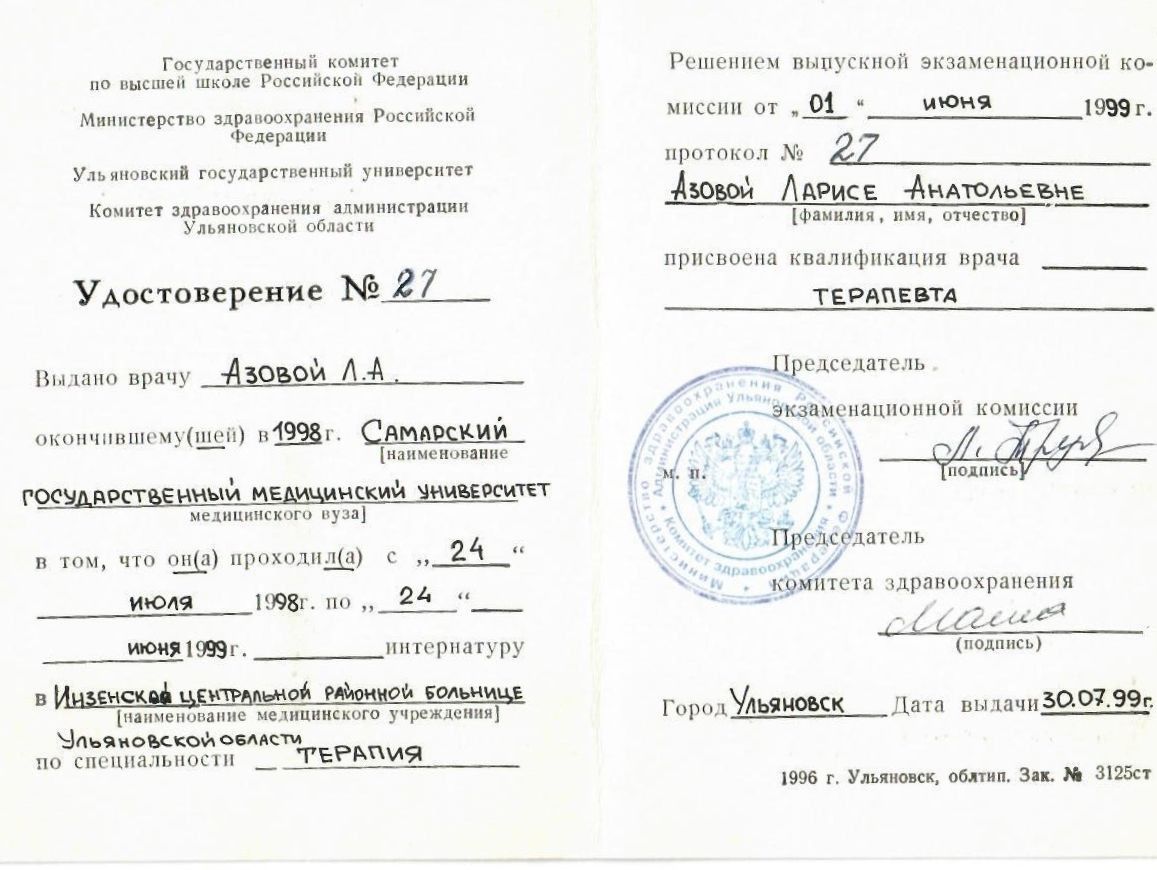 Государственный комитет
по высшей школе Российской Федерации
Министерство здравоохранения Российской
Федерации
Ульяновский государственный университет
Комитет здравоохранения администрации
Ульяновской области
Удостоверение № 27
Выдано врачу Азовой Л.А.
окончившему(шей) в 1998г. Самарский
[наименование
государственный медицинский университет
медицинского вуза]
в том, что он(а) проходил(а) с „ 24 “
июля 1998г. по „ 24 “
июня 1999г. интернатуру
в Инзенской центральной районной больнице
[наименование медицинского учреждения]
Ульяновской области
по специальности терапия
Решением выпускной экзаменационной ко-
миссии от „ 01 “ июня 1999 г.
протокол № 27
Азовой Ларисе Анатольевне
[фамилия, имя, отчество]
присвоена квалификация врача
терапевта
Председатель
экзаменационной комиссии
[подпись]
м. п.
Председатель
комитета здравоохранения
(подпись)
Город Ульяновск Дата выдачи 30.07.99г.
1996 г. Ульяновск, облтип. Зак. № 3125ст
Министерство здравоохранения Российской Федерации
Администрация Ульяновской области
Комитет здравоохранения